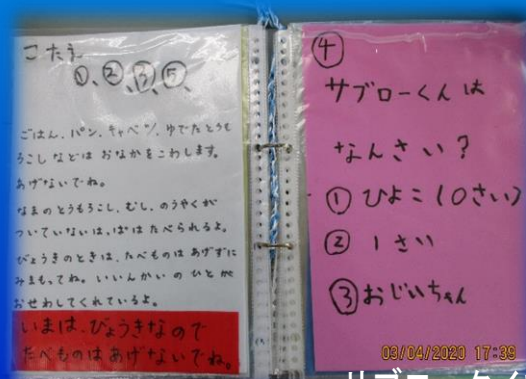 こたえ
①、②、③、⑤、
ごはん、パン、キャベツ、ゆでたとうも
ろこしなどは おなかをこわします。
あげないでね。
なまのとうもろこし、むし、のうやくが
ついていないはっぱは たべられるよ。
びょうきのときは、たべものは あげずに
みまもってね。いいんかいの ひとが
おせわしてくれているよ。
いまは、びょうきなので
たべものはあげないでね。
④
サブローくんは
なんさい?
① ひよこ(0さい)
② 1さい
③ おじいちゃん
03/04/2020 17:39